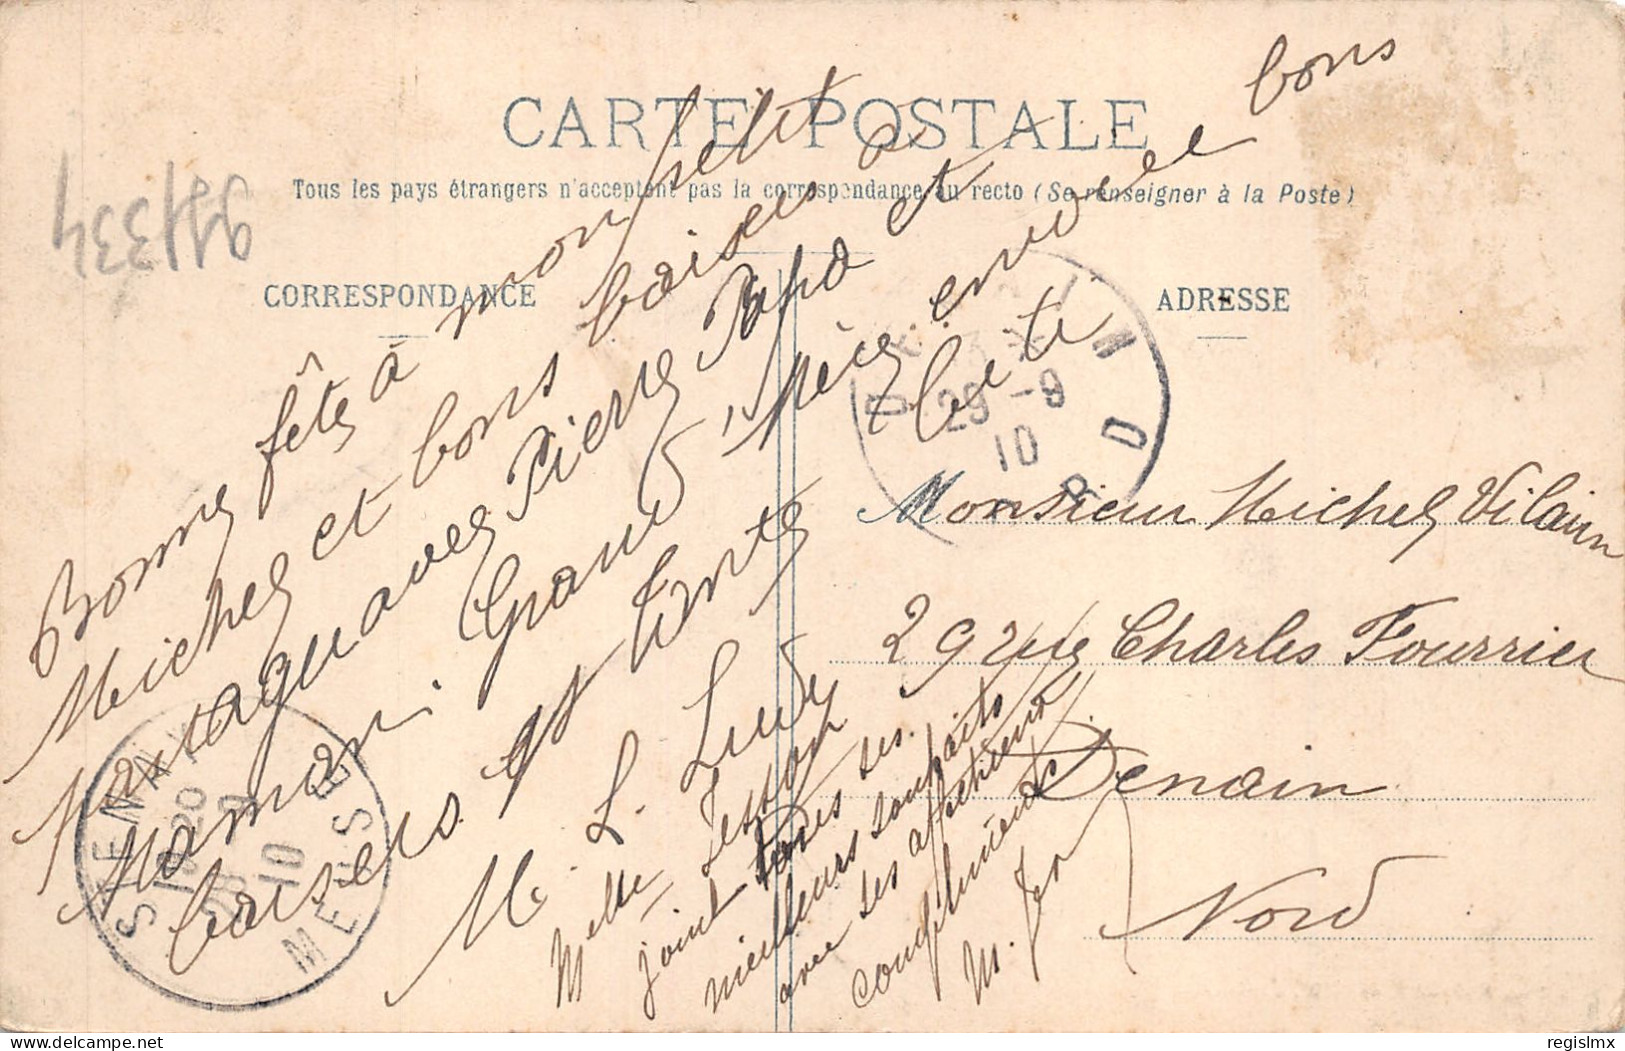 CARTE POSTALE
Tous les pays étrangers n'acceptent pas la correspondance au recto (Se renseigner à la Poste)
CORRESPONDANCE
ADRESSE
Bonne fête à mon petit
Michel et bons baisers à
partager avec Pierre Papa et
Maman. Grand' Mère envoie bons
baisers et tante
M. L. Ludy
Melle Tesson
joint toutes ses
meilleurs souhaits
avec ses affectueux
compliments
Monsieur Michel Vilain
29 rue Charles Fourrier
Denain
Nord
STENAY
MEUSE
29 -9
10
regislmx